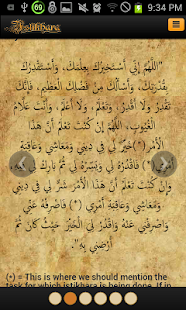 9:34 PM
69
Istikhara
"اللَّهُمَّ إِنِّي أَسْتَخِيرُكَ بِعِلْمِكَ، وَأَسْتَقْدِرُكَ
بِقُدْرَتِكَ، وَأَسْأَلُكَ مِنْ فَضْلِكَ الْعَظِيمِ، فَإِنَّكَ
تَقْدِرُ وَلَا أَقْدِرُ، وَتَعْلَمُ، وَلَا أَعْلَمُ، وَأَنْتَ عَلَّامُ
الْغُيُوبِ، اللَّهُمَّ إِنْ كُنْتَ تَعْلَمُ أَنَّ هَذَا
الْأَمْرَ (*) خَيْرٌ لِي فِي دِينِي وَمَعَاشِي وَعَاقِبَةِ
أَمْرِي (*) فَاقْدُرْهُ لِي وَيَسِّرْهُ لِي ثُمَّ بَارِكْ لِي فِيهِ،
وَإِنْ كُنْتَ تَعْلَمُ أَنَّ هَذَا الْأَمْرَ شَرٌّ لِي فِي دِينِي
وَمَعَاشِي وَعَاقِبَةِ أَمْرِي (*) فَاصْرِفْهُ عَنِّي
وَاصْرِفْنِي عَنْهُ وَاقْدُرْ لِيَ الْخَيْرَ حَيْثُ كَانَ ثُمَّ
أَرْضِنِي بِهِ."
(*) = This is where we should mention the
task for which istikhara is being done. If in